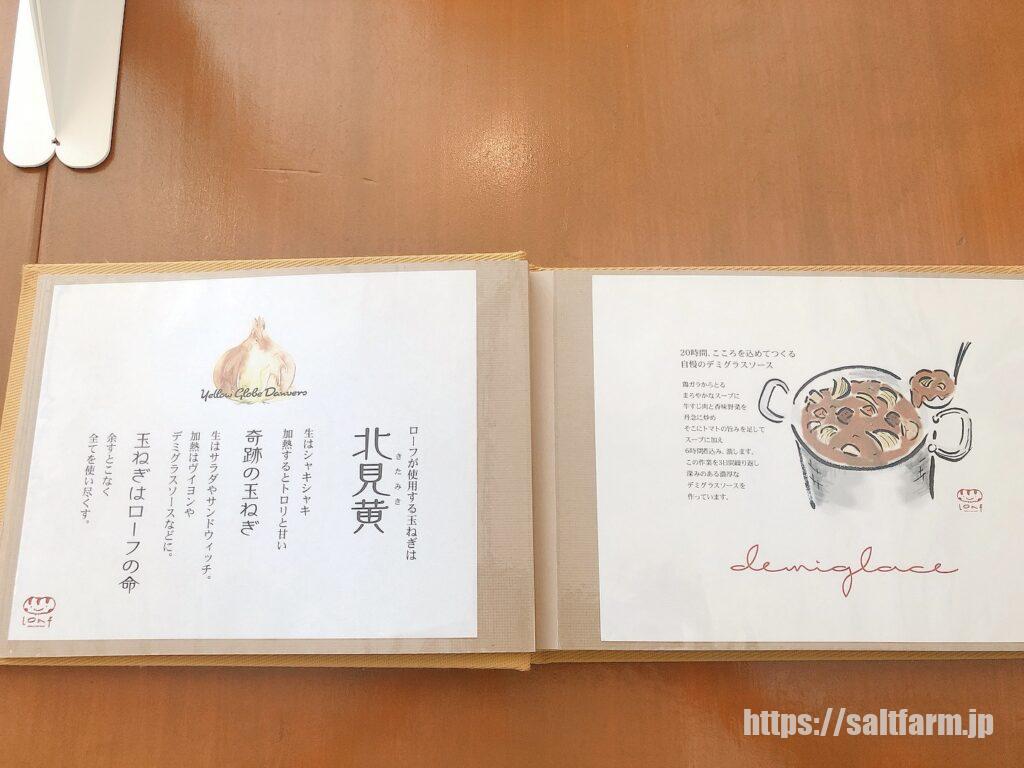 Yellow Globe Danvers
ローフが使用する玉ねぎは
北見黄
きたみき
生はシャキシャキ
加熱するとトロリと甘い
奇跡の玉ねぎ
生はサラダやサンドウィッチ。
加熱はヴイヨンや
デミグラスソースなどに。
玉ねぎはローフの命
余すとこなく
全てを使い尽くす。
loaf
20時間、こころを込めてつくる
自慢のデミグラスソース
鶏ガラからとる
まろやかなスープに
牛すじ肉と香味野菜を
丹念に炒め
そこにトマトの旨みを足して
スープに加え
6時間煮込み、漉します。
この作業を3日間繰り返し
深みのある濃厚な
デミグラスソースを
作っています。
loaf
demiglace
https://saltfarm.jp